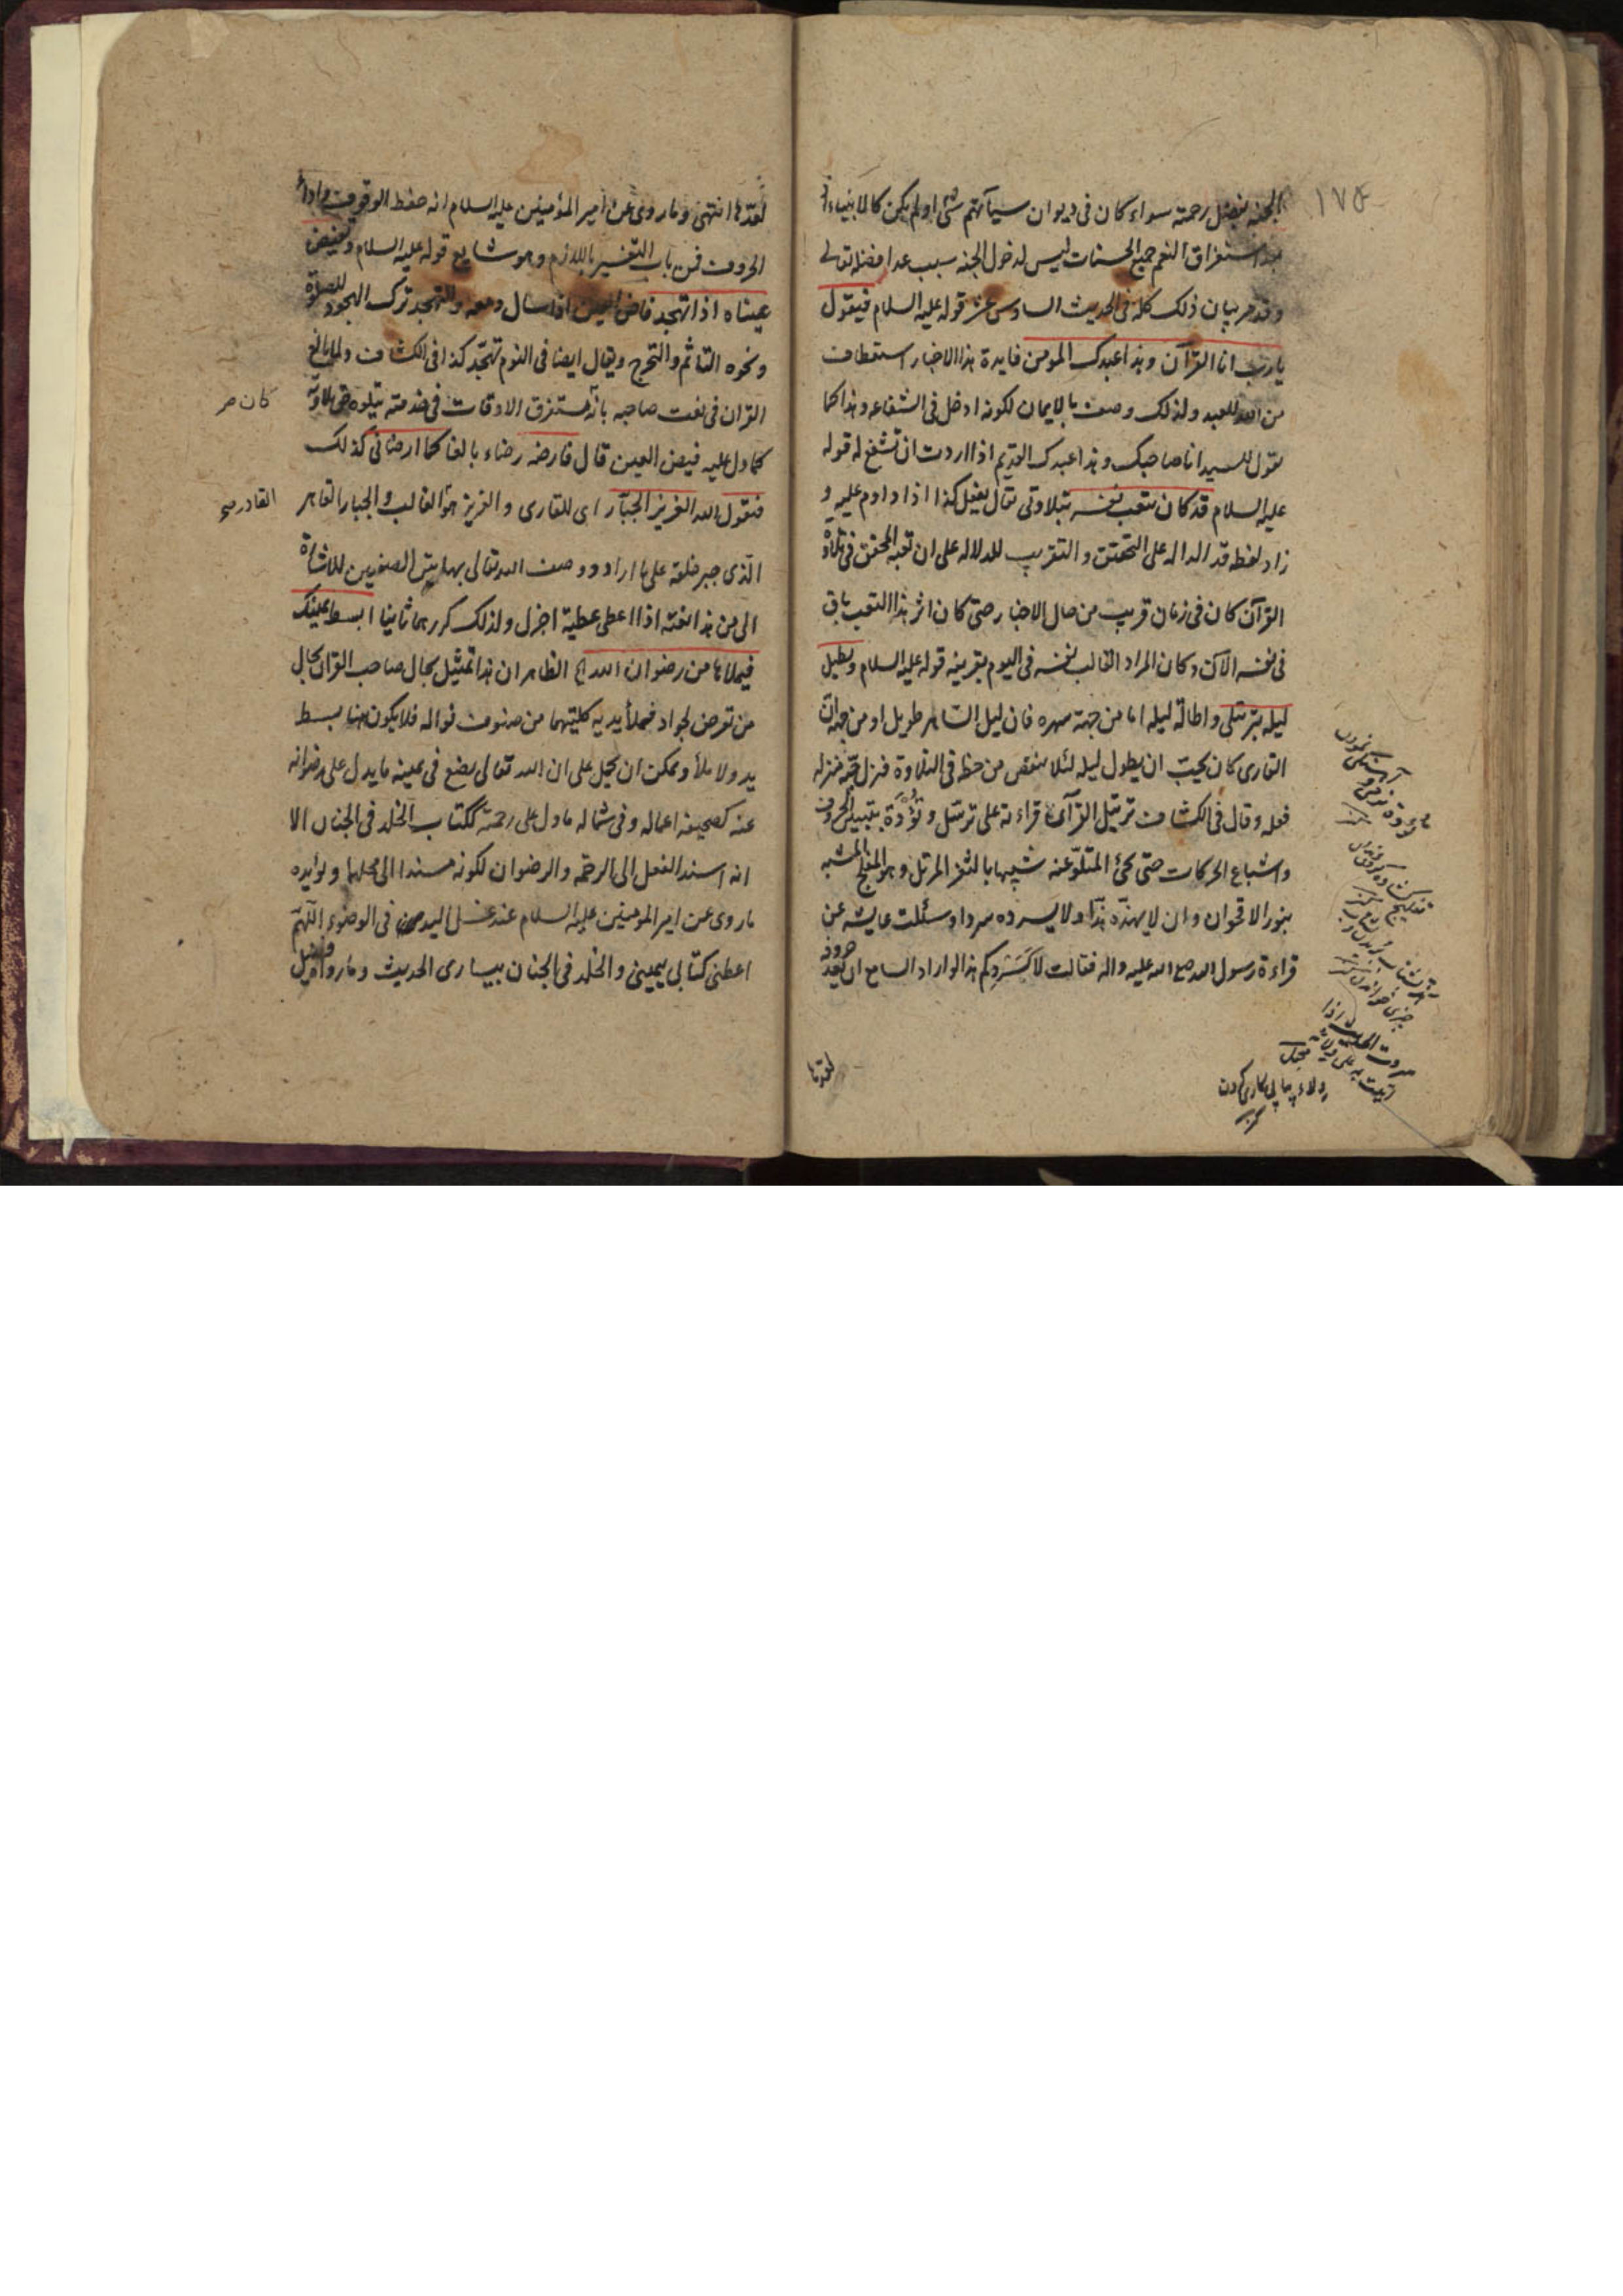 ١٧٥
الجنه بفضل رحمته سواء كان فى ديوان سيآتهم شئ او لم يكن كالانبياء
بعد استغراق النعم جميع الحسنات ليس لدخول الجنه سبب عدا فضله تعالى
وقد مر بيان ذلك كله فى الحديث السادس عشر قوله عليه السلام فيقول
يا رب انا القرآن وهذا عبدك المومن فايدة هذا الاخبار استعطاف
من الله للعبد ولذلك وصف بالايمان لكونه ادخل فى الشفاعه وهذا كما
تقول للسيد انا صاحبك وهذا عبدك القديم اذا اردت ان تشفع له قوله
عليه السلام قد كان يتعب نفسه بتلاوتى يقال يفعل كذا اذا داوم عليه و
زاد لفظ قد الداله على التحقيق والتقريب للدلاله على ان تعبه المحقق فى تلاوة
القرآن كان فى زمان قريب من حال الاخبار حتى كان اثر هذا التعب باق
فى نفسه الآن وكان المراد اتعاب نفسه فى اليوم بقرينه قوله عليه السلام ويطيل
ليله بترتيلى واطالة ليله اما من جهة سهره فان ليل الساهر طويل او من جهة ان
القارى كان يحب ان يطول ليله لئلا ينقص من حظه فى التلاوة فنزل محبته منزله
فعله وقال فى الكشاف ترتيل القرآن قراءته على ترسل وتؤدة بتبيين الحروف
واشباع الحركات حتى يجئ المتلو عنه شبيها بالثغر المرتل وهو المفلج المشبه
بنور الاقحوان وان لا يهذه هذا ولا يسرده سردا وسئلت عايشه عن
قراءة رسول الله صلى الله عليه واله فقالت لا كسردكم هذا لو اراد السامع ان يعد حروفه
لعدها
لعدها انتهى وما روى عن امير المؤمنين عليه السلام انه حفظ الوقوف واداء
الحروف فمن باب التفسير باللازم وهو شايع قوله عليه السلام وتفيض
عيناه اذا تهجد فاض العين اذا سال دمعه والتهجد ترك الهجود للصلوة
ونحوه التاثم والتحرج ويقال ايضا فى النوم تهجد كذا فى الكشاف ولما بالغ
القران فى نعت صاحبه بانه مستغرق الاوقات فى خدمته يتلوه حق تلاوته
كان
كما دل عليه فيض العين قال فارضه رضاء بالغا كما ارضانى كذلك
فيقول الله العزيز الجبار اى للقارى والعزيز هو الغالب والجبار القاهر
القادر
الذى جبر خلقه على ما اراد ووصف الله تعالى بهاتين الصفتين للاشارة
الى من هذا نعته اذا اعطى عطية اجزل ولذلك كررهما ثانيا ابسط يمينك
فيملاها من رضوان الله الظاهر ان هذا تمثيل بحال صاحب القرآن بحال
من تعرض لجواد فملأ يديه كلتيهما من صنوف نواله فلا يكون هنا بسط
يد ولا ملأ ويمكن ان يحمل على ان الله تعالى يضع فى يمينه ما يدل على رضوانه
عنه كصحيفه اعماله وفى شماله ما دل على رحمته ككتاب الخلد فى الجنان الا
انه اسند الفعل الى الرحمه والرضوان لكونه مسندا الى محلهما ويؤيده
ما روى عن امير المومنين عليه السلام عند غسل اليد فى الوضوء اللهم
اعطنى كتابى بيمينى والخلد فى الجنان بيسارى الحديث وما روا